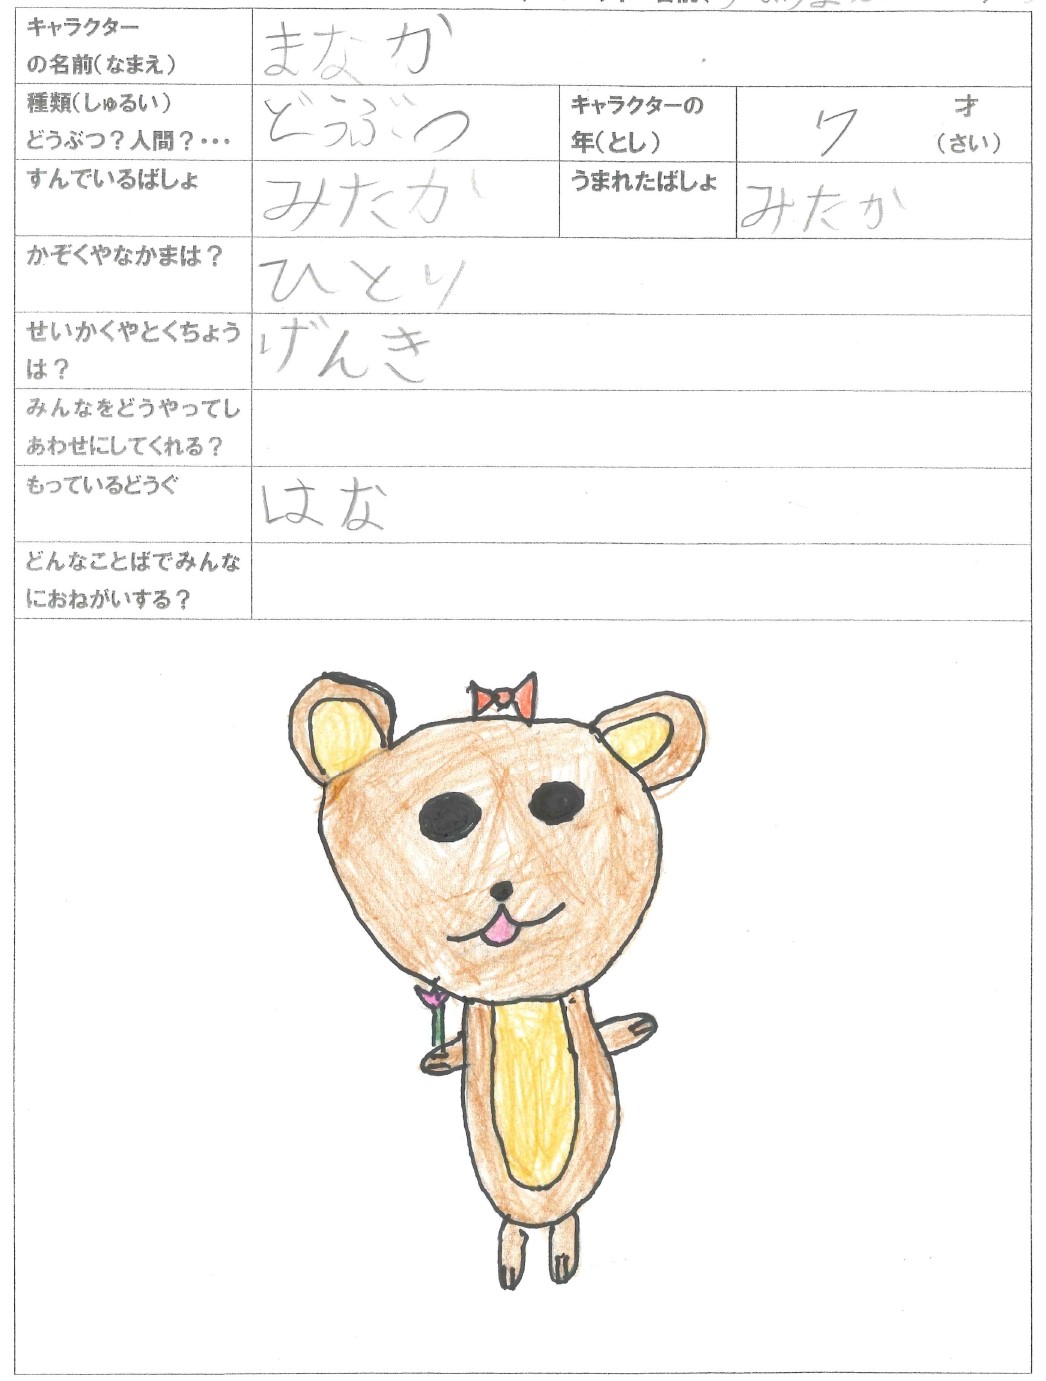 キャラクター
の名前(なまえ)
まなか
種類(しゅるい)
どうぶつ?人間?・・・
どうぶつ
キャラクターの
年(とし)
7
才
(さい)
すんでいるばしょ
みたか
うまれたばしょ
みたか
かぞくやなかまは?
ひとり
せいかくやとくちょう
は?
げんき
みんなをどうやってし
あわせにしてくれる?
もっているどうぐ
はな
どんなことばでみんな
におねがいする?